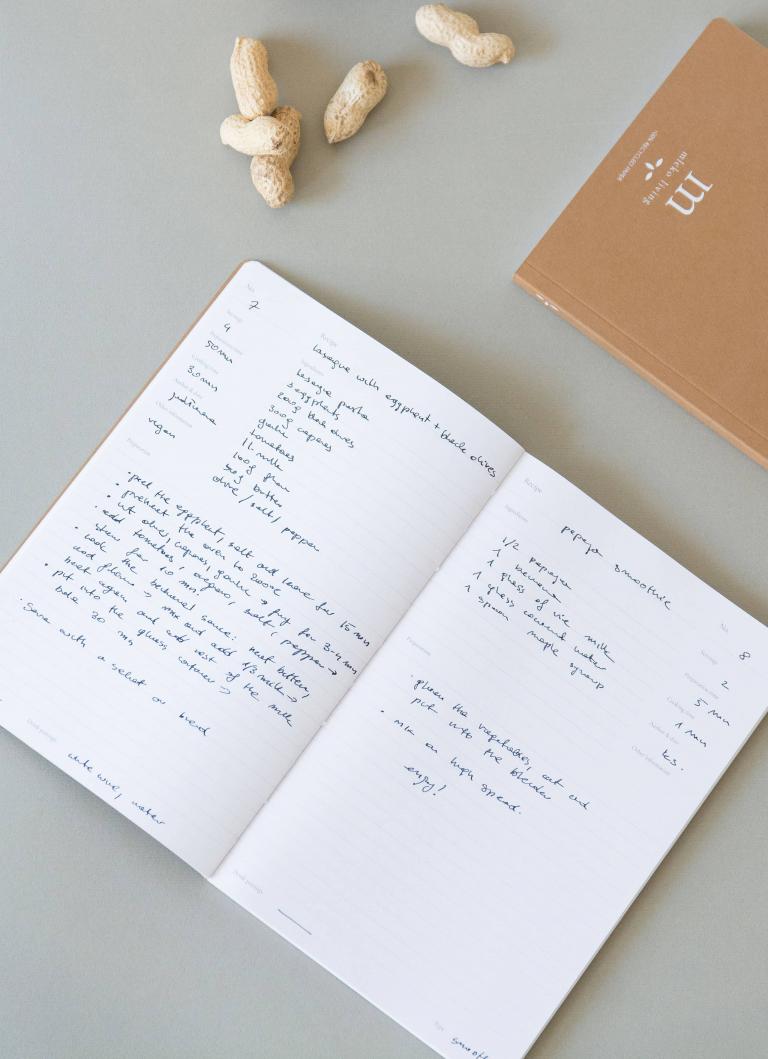 100% RECYCLED PAPER
mleko living
m
No.
7
Servings
4
Preparation time
50 min
Cooking time
30 min
Author & date
Other information
vegan
Recipe
lasagne with eggplant + black olives
Ingredients
lasagne pasta
3 eggplants
200g black olives
300g capers
garlic
tomatoes
1L milk
100g flour
butter
olive / salt / pepper
Preparation
• peel the eggplant, salt and leave for 15 min
• preheat the oven to 200°C
• cut olives, capers, garlic → fry for 3-4 min
• add tomatoes, oregano, salt, pepper →
stew for 10 min.
• cook the bechamel sauce: heat butter,
add flour → mix and add 1/3 milk →
heat again and add rest of the milk
• put into the glass container →
bake 30 min
• Serve with a salad or bread
Drink pairings
white wine, water
Recipe
papaya smoothie
Ingredients
1/2 papaya
1 banana
1 glass of rice milk
1 glass coconut water
1 spoon maple syrup
No.
8
Servings
2
Preparation time
5 min
Cooking time
1 min
Author & date
ks.
Other information
Preparation
• clean the vegetables, cut and
put into the blender
• mix on high speed.
enjoy!
Drink pairings
—